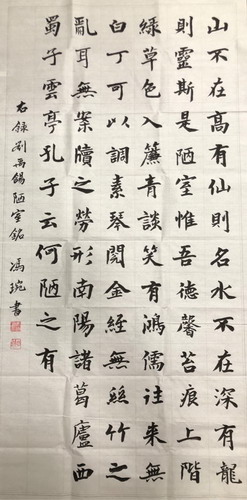 山不在高有仙則名水不在深有龍
則靈斯是陋室惟吾德馨苔痕上階
綠草色入簾青談笑有鴻儒往來無
白丁可以調素琴閱金經無絲竹之
亂耳無案牘之勞形南陽諸葛廬西
蜀子雲亭孔子云何陋之有
右録刘禹錫陋室銘 馮琬書